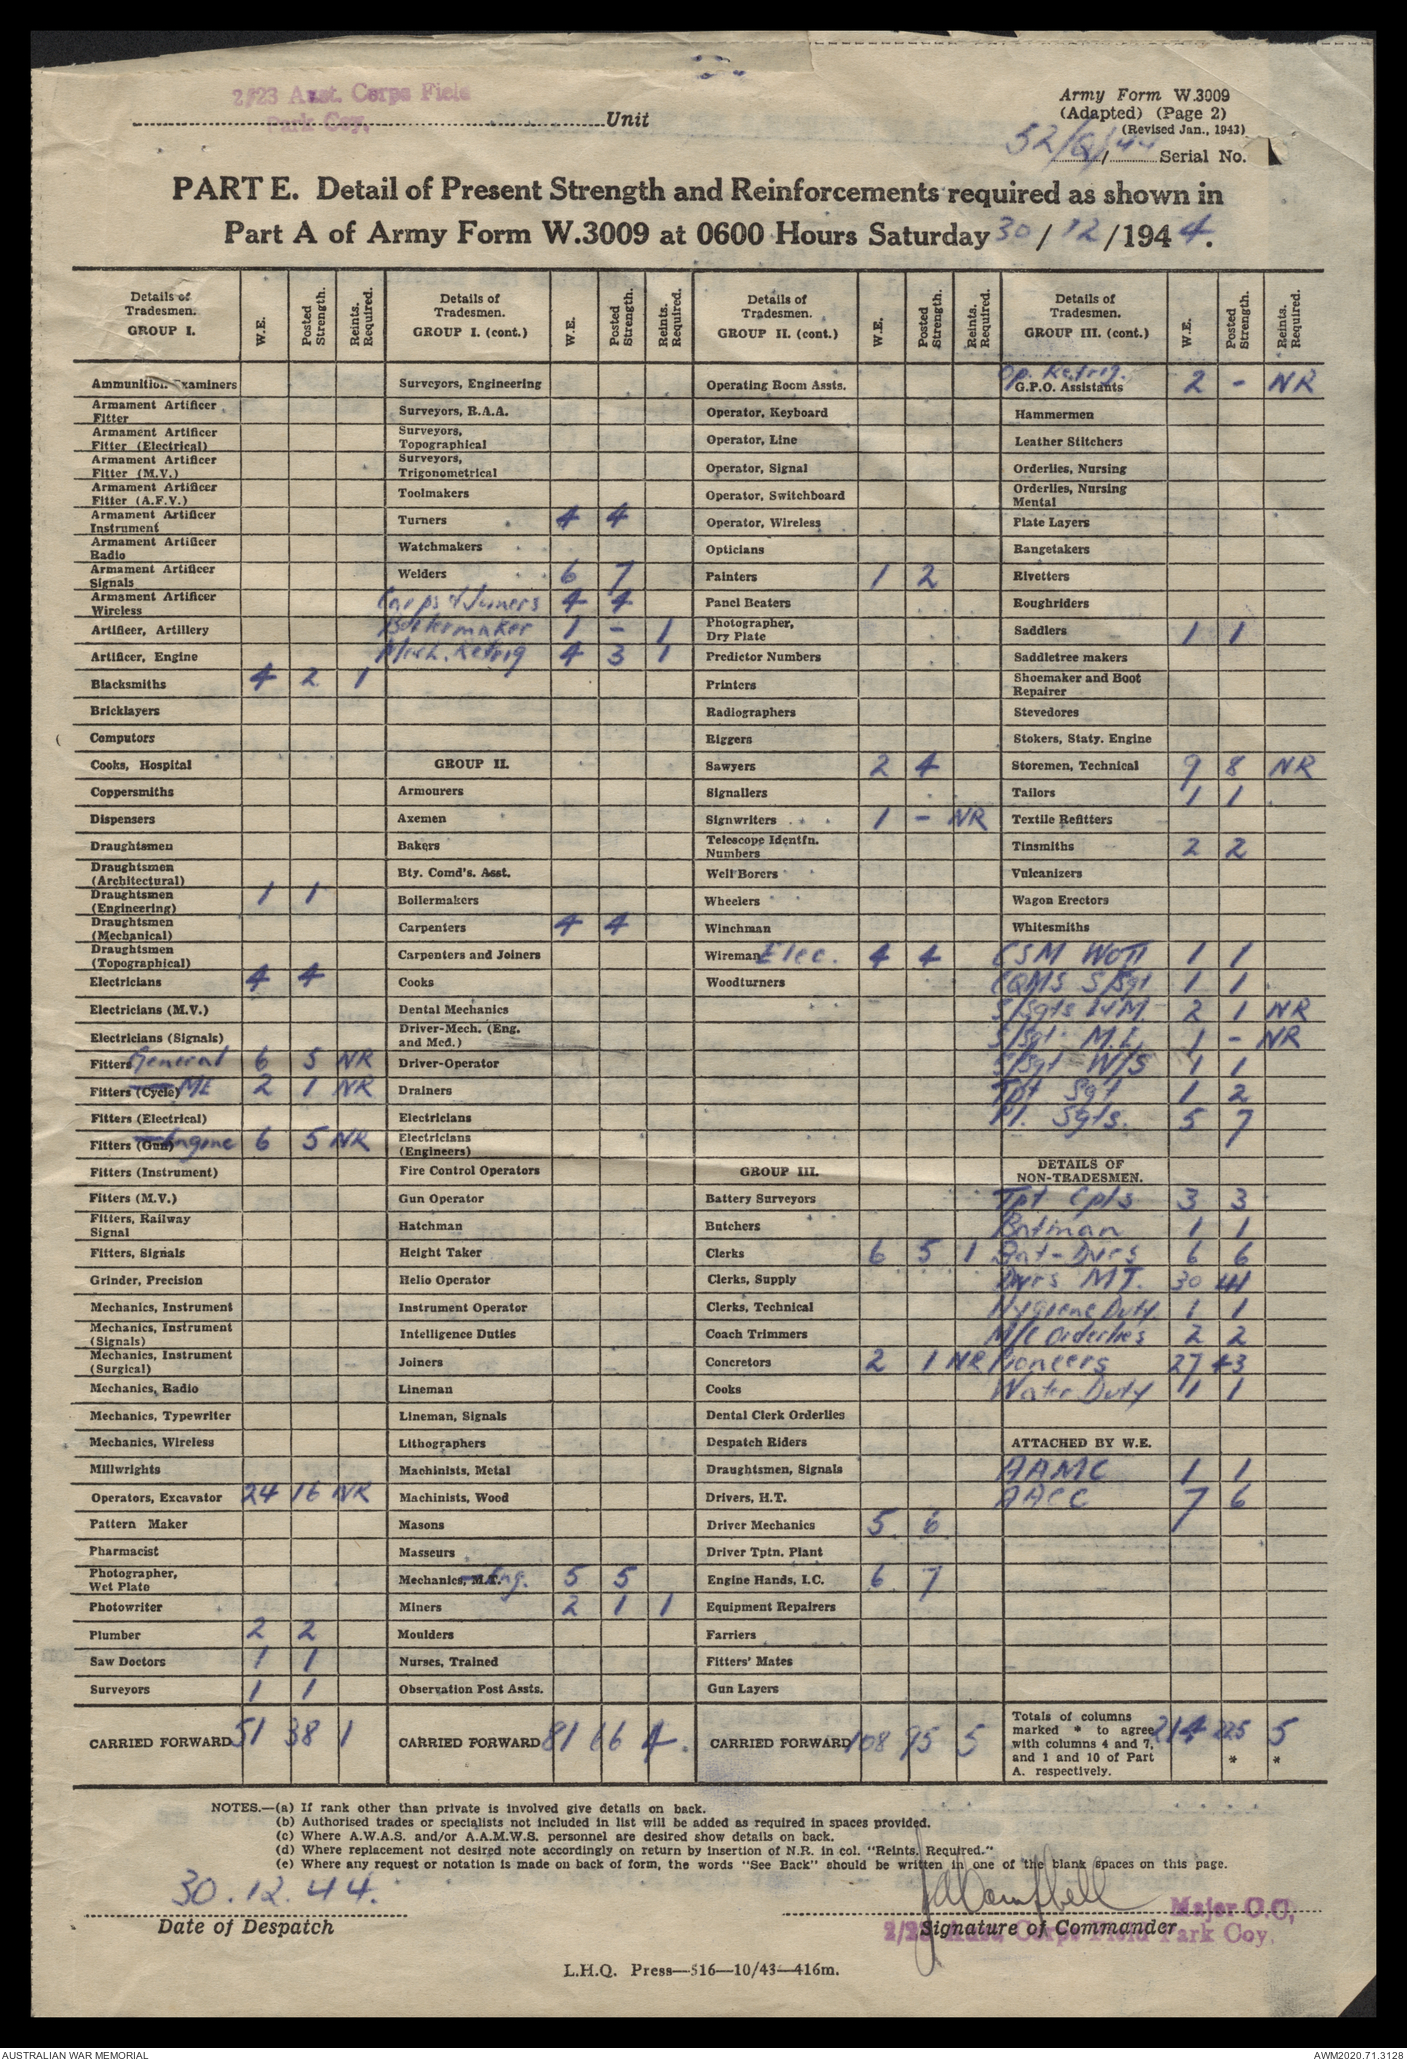 2/23 Aust. Corps Field
Park Coy.
Unit
Army Form W.3009
(Adapted) (Page 2)
(Revised Jan., 1943)
52/G/44 Serial No.
PART E. Detail of Present Strength and Reinforcements required as shown in
Part A of Army Form W.3009 at 0600 Hours Saturday 30 / 12 / 1944.
Details of Tradesmen. GROUP I. W.E. Posted Strength. Reints. Required.
Ammunition Examiners
Armament Artificer Fitter
Armament Artificer Fitter (Electrical)
Armament Artificer Fitter (M.V.)
Armament Artificer Fitter (A.F.V.)
Armament Artificer Instrument
Armament Artificer Radio
Armament Artificer Signals
Armament Artificer Wireless
Artificer, Artillery
Artificer, Engine
Blacksmiths 4 2 1
Bricklayers
Computors
Cooks, Hospital
Coppersmiths
Dispensers
Draughtsmen
Draughtsmen (Architectural)
Draughtsmen (Engineering) 1 1
Draughtsmen (Mechanical)
Draughtsmen (Topographical)
Electricians 4 4
Electricians (M.V.)
Electricians (Signals)
Fitters General 6 5 NR
Fitters (Cycle) ME 2 1 NR
Fitters (Electrical)
Fitters (Gun) Engine 6 5 NR
Fitters (Instrument)
Fitters (M.V.)
Fitters, Railway Signal
Fitters, Signals
Grinder, Precision
Mechanics, Instrument
Mechanics, Instrument (Signals)
Mechanics, Instrument (Surgical)
Mechanics, Radio
Mechanics, Typewriter
Mechanics, Wireless
Millwrights
Operators, Excavator 24 16 NR
Pattern Maker
Pharmacist
Photographer, Wet Plate
Photowriter
Plumber 2 2
Saw Doctors 1 1
Surveyors 1 1
CARRIED FORWARD 51 38 1
Details of Tradesmen. GROUP I. (cont.) W.E. Posted Strength. Reints. Required.
Surveyors, Engineering
Surveyors, R.A.A.
Surveyors, Topographical
Surveyors, Trigonometrical
Toolmakers
Turners 4 4
Watchmakers
Welders 6 7
Carps & Joiners 4 4
Boilermaker 1 - 1
Mech. Refrig 4 3 1
GROUP II.
Armourers
Axemen
Bakers
Bty. Comd's. Asst.
Boilermakers
Carpenters 4 4
Carpenters and Joiners
Cooks
Dental Mechanics
Driver-Mech. (Eng. and Med.)
Driver-Operator
Drainers
Electricians
Electricians (Engineers)
Fire Control Operators
Gun Operator
Hatchman
Height Taker
Helio Operator
Instrument Operator
Intelligence Duties
Joiners
Lineman
Lineman, Signals
Lithographers
Machinists, Metal
Machinists, Wood
Masons
Masseurs
Mechanics, M.T. Eng. 5 5
Miners 2 1 1
Moulders
Nurses, Trained
Observation Post Assts.
CARRIED FORWARD 81 66 4.
Details of Tradesmen. GROUP II. (cont.) W.E. Posted Strength. Reints. Required.
Operating Room Assts.
Operator, Keyboard
Operator, Line
Operator, Signal
Operator, Switchboard
Operator, Wireless
Opticians
Painters 1 2
Panel Beaters
Photographer, Dry Plate
Predictor Numbers
Printers
Radiographers
Riggers
Sawyers 2 4
Signallers
Signwriters 1 - NR
Telescope Identfn. Numbers
Well Borers
Wheelers
Winchman
Wireman Elec. 4 4
Woodturners
GROUP III.
Battery Surveyors
Butchers
Clerks 6 5 1
Clerks, Supply
Clerks, Technical
Coach Trimmers
Concretors 2 1 NR
Cooks
Dental Clerk Orderlies
Despatch Riders
Draughtsmen, Signals
Drivers, H.T.
Driver Mechanics 5 6
Driver Tptn. Plant
Engine Hands, I.C. 6 7
Equipment Repairers
Farriers
Fitters' Mates
Gun Layers
CARRIED FORWARD 108 95 5
Details of Tradesmen. GROUP III. (cont.) W.E. Posted Strength. Reints. Required.
Op. Refrig.
G.P.O. Assistants 2 - NR
Hammermen
Leather Stitchers
Orderlies, Nursing
Orderlies, Nursing Mental
Plate Layers
Rangetakers
Rivetters
Roughriders
Saddlers 1 1
Saddletree makers
Shoemaker and Boot Repairer
Stevedores
Stokers, Staty. Engine
Storemen, Technical 9 8 NR
Tailors 1 1
Textile Refitters
Tinsmiths 2 2
Vulcanizers
Wagon Erectors
Whitesmiths
CSM WOII 1 1
CQMS S/Sgt 1 1
S/Sgts 2 1 NR
S/Sgt - M.E. 1 - NR
S/Sgt - W/S 1 1
Tpt Sgt 1 2
Pl. Sgts. 5 7
DETAILS OF NON-TRADESMEN.
Tpt Cpls 3 3
Batman 1 1
Bat-Dvrs 6 6
Dvrs MT. 30 41
Hygiene Duty. 1 1
M/C Orderlies 2 2
Pioneers 27 43
Water Duty 1 1
ATTACHED BY W.E.
AAMC 1 1
AACC 7 6
Totals of columns marked * to agree with columns 4 and 7, and 1 and 10 of Part A. respectively. 214 225 * 5 *
NOTES.—(a) If rank other than private is involved give details on back.
(b) Authorised trades or specialists not included in list will be added as required in spaces provided.
(c) Where A.W.A.S. and/or A.A.M.W.S. personnel are desired show details on back.
(d) Where replacement not desired note accordingly on return by insertion of N.R. in col. "Reints. Required."
(e) Where any request or notation is made on back of form, the words "See Back" should be written in one of the blank spaces on this page.
30.12.44.
Date of Despatch
JACampbell
Major O.C,
2/23 Aust Corps Field Park Coy.
Signature of Commander
L.H.Q. Press—516—10/43—416m.
AUSTRALIAN WAR MEMORIAL
AWM2020.71.3128